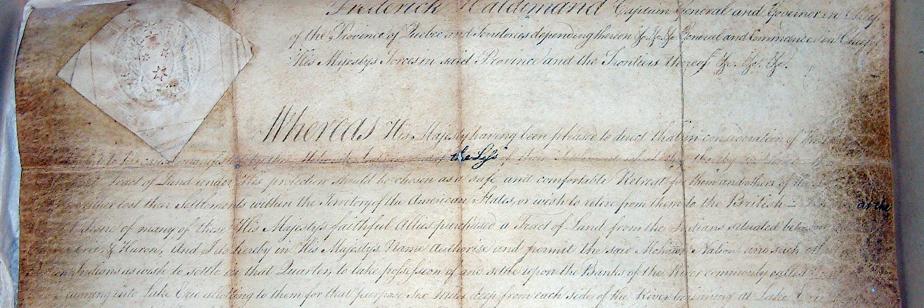 Frederick Haldimand Captain General and Governor in Chief
of the Province of Quebec and Territories depending thereon &c. &c. &c. General and Commander in Chief of
His Majestys Forces in said Province and the Frontiers thereof &c. &c. &c.
Whereas His Majesty having been pleased to direct that in consideration of the
the Loss of their
Tract of Land under His protection should be chosen as a safe and comfortable Retreat for them and others of the
lost their Settlements within the Territory of the American States, or wish to retire from them to the British
of many of these His Majesty's faithful Allies purchased a Tract of Land from the Indians situated between the
& Huron, And I do hereby in His Majesty's Name authorise and permit the said Mohawk Nation and such other
Indians as wish to settle in that Quarter, to take possession of and settle upon the Banks of the River commonly called
running into Lake Erie allotting to them for that purpose Six Miles deep from each side of the River beginning at Lake Erie